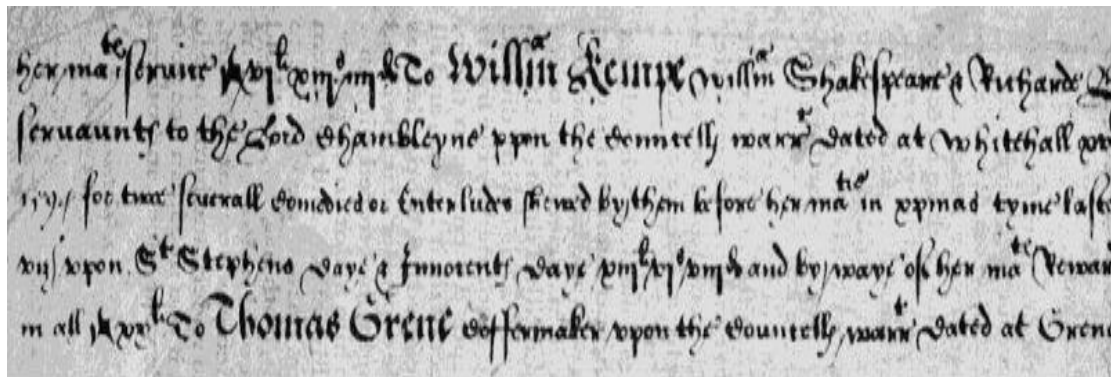 her ma^te service vj^l xiij^s iiij^d To Willm̃ Kempe Willm̃ Shakespeare & Richarde
servaunts to the Lord Chambleyne vpon the Councells warr^t dated at Whitehall xv
for twoe severall Comedies or Enterludes shewed by them before her ma^tie in xpmas tyme laste
viz vpon S^t Stephens daye & Innocents daye xiij^l vj^s viij^d and by waye of her ma^te Rewar
in all xx^l To Thomas Grene Coffermaker vpon the Councells warr^t dated at Grene